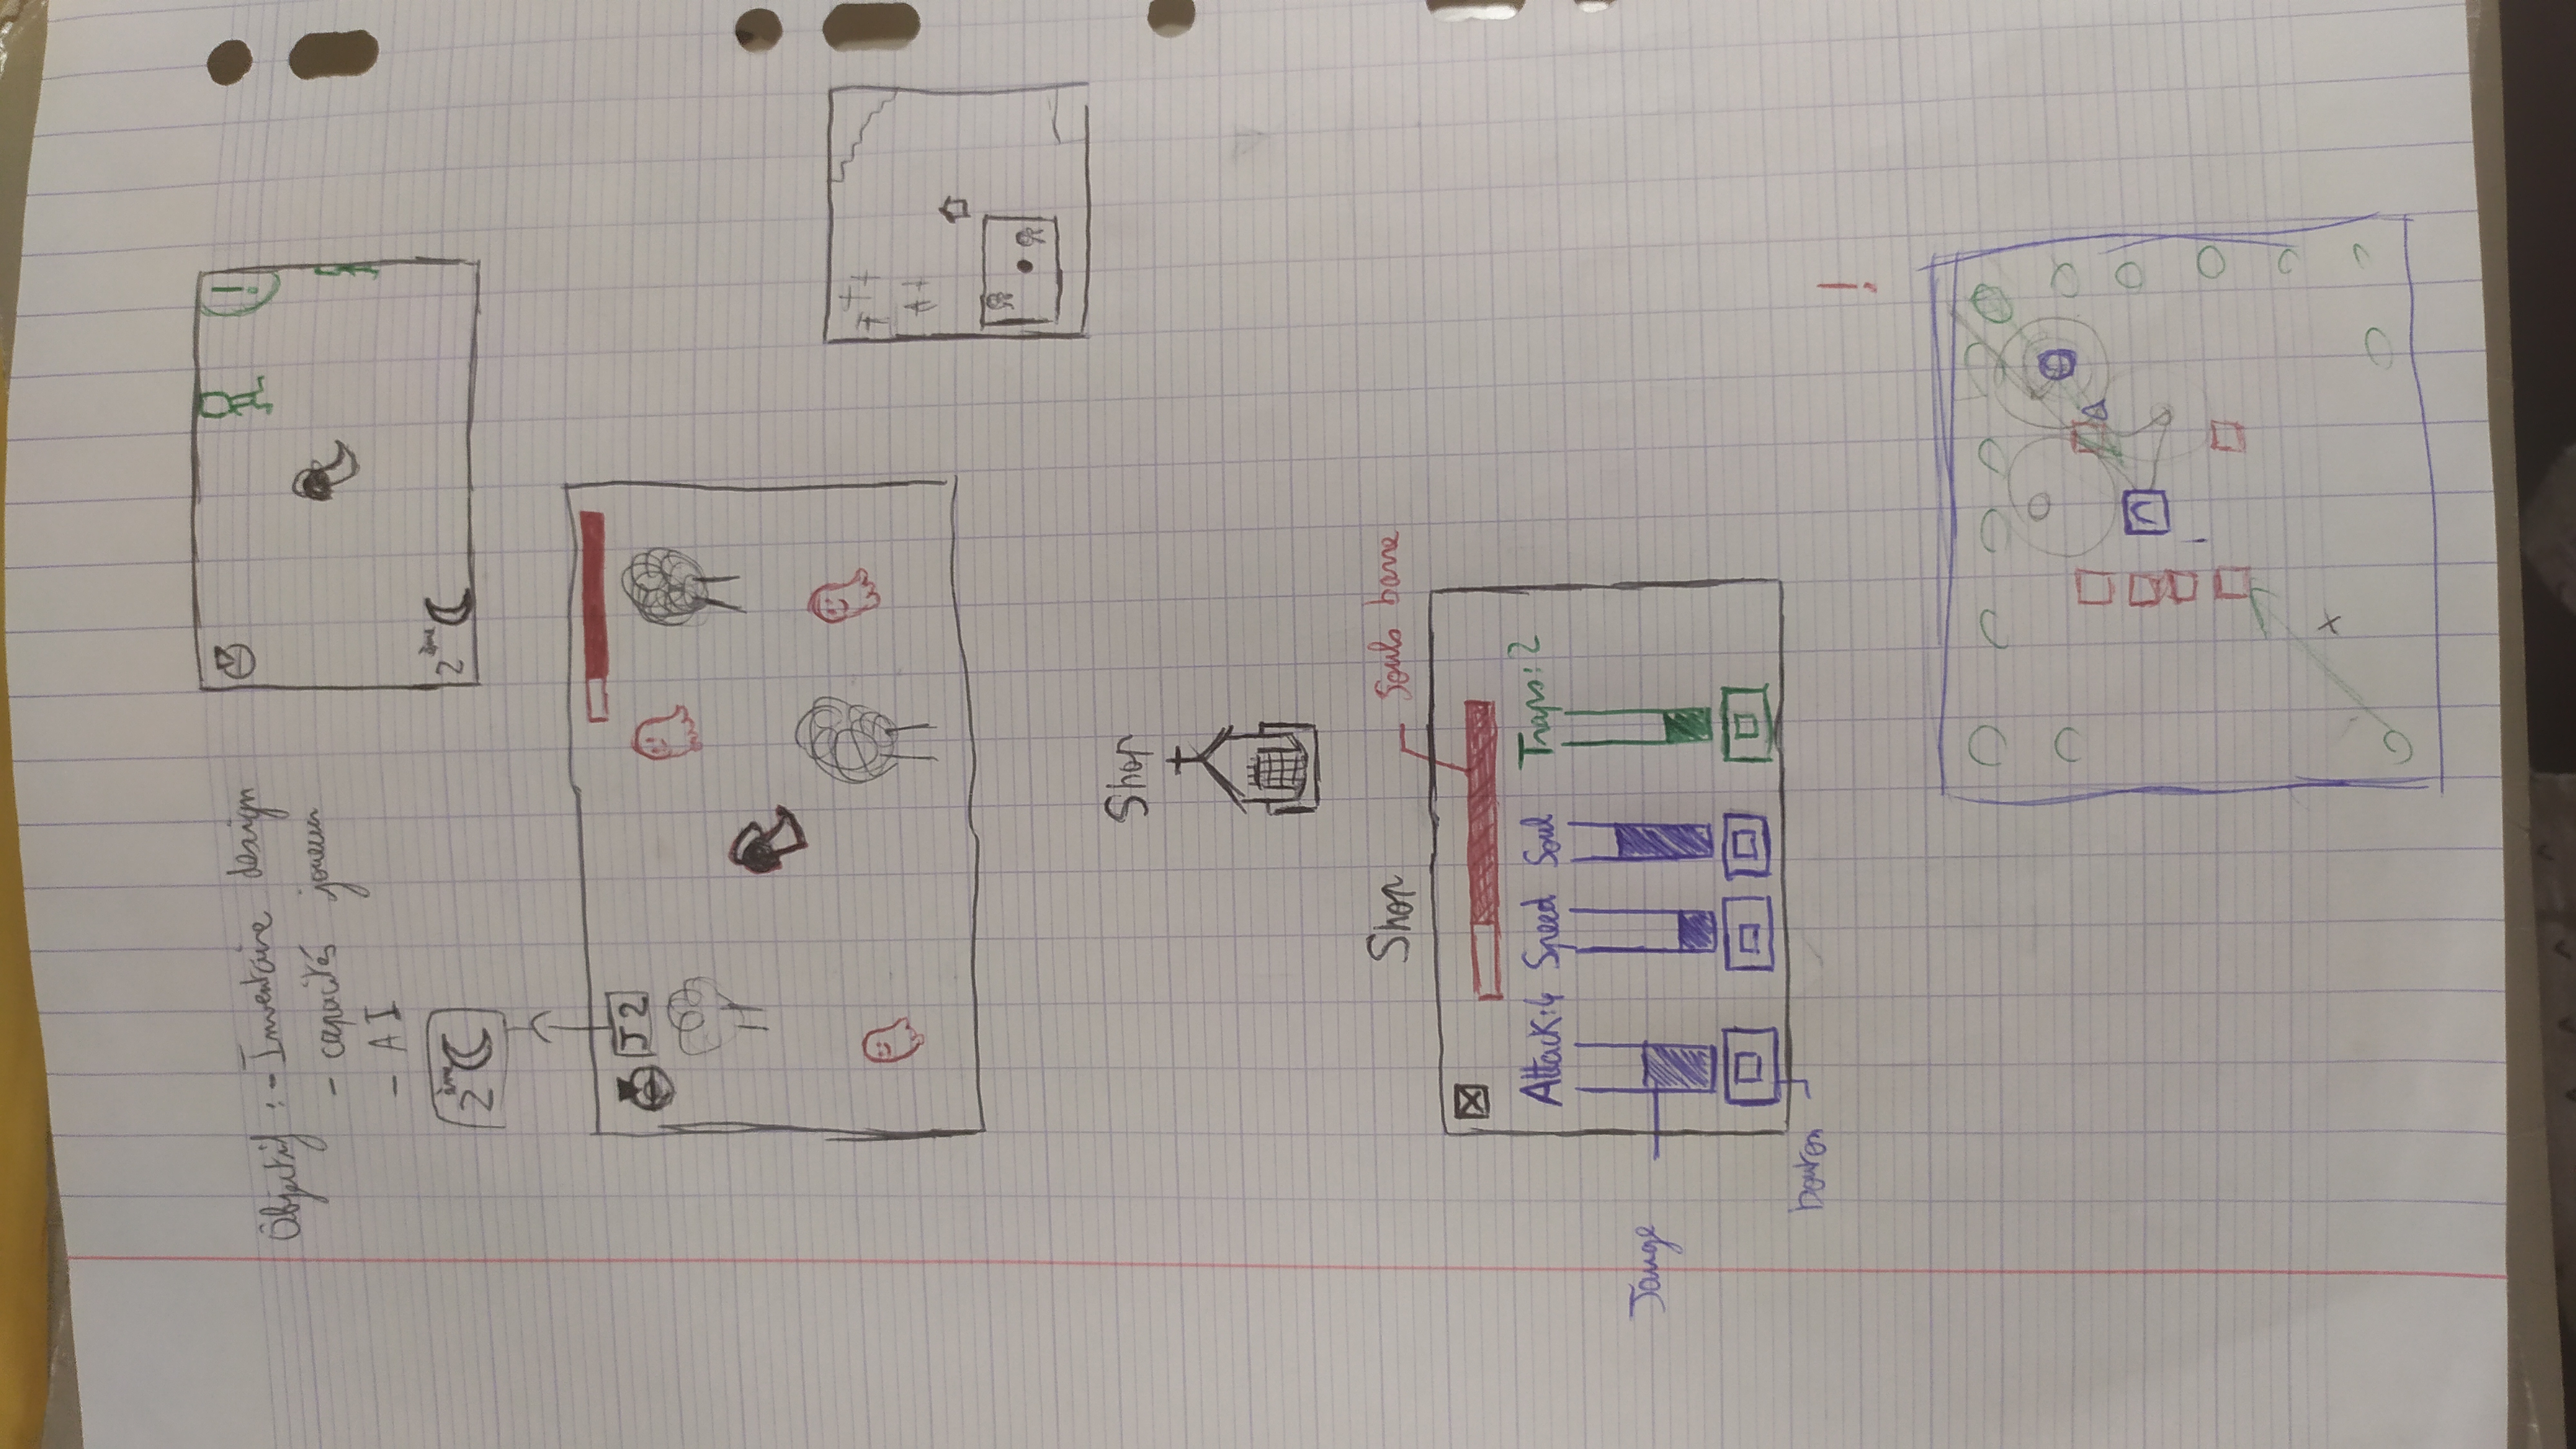 Objectif : - Inventaire design
- capacités joueur
- AI
2ème
!
2ème
J2
Shop
Shop
Souls barre
Attack:4 Speed Soul Traps:2
Jauge
bouton
!